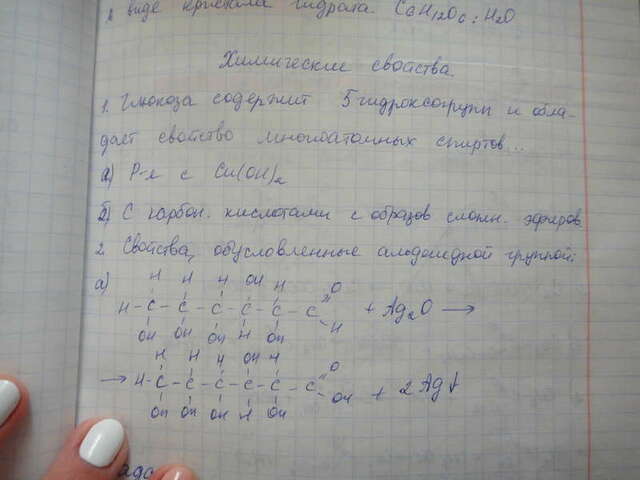 в виде кристалла гидрата. C6H12O6 · H2O
Химические свойства.
1. Глюкоза содержит 5 гидроксогрупы и обла-
дает свойство многоатомных спиртов...
а) Р-я с Cu(OH)2
б) С карбон. кислотами с образов сложн. эфиров.
2. Свойства, обусловленные альдегидной группой:
а)
H H H OH H O
H - C - C - C - C - C - C + Ag2O →
H
OH OH OH H OH
H H H OH H O
→ H - C - C - C - C - C - C + 2 Ag↓
OH
OH OH OH H OH